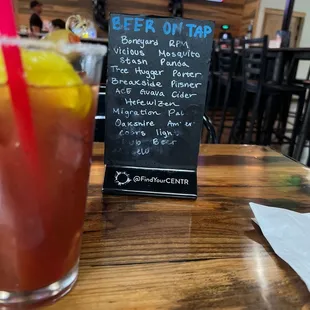 BEER ON TAP
Boneyard RPM
Vicious Mosquito
Stash Panda
Tree Hugger Porter
Breakside Pilsner
ACE Guava Cider
Hefewizen
Migration Pal
Oakshire Am er
coors light
Beer
@FindYourCENTR